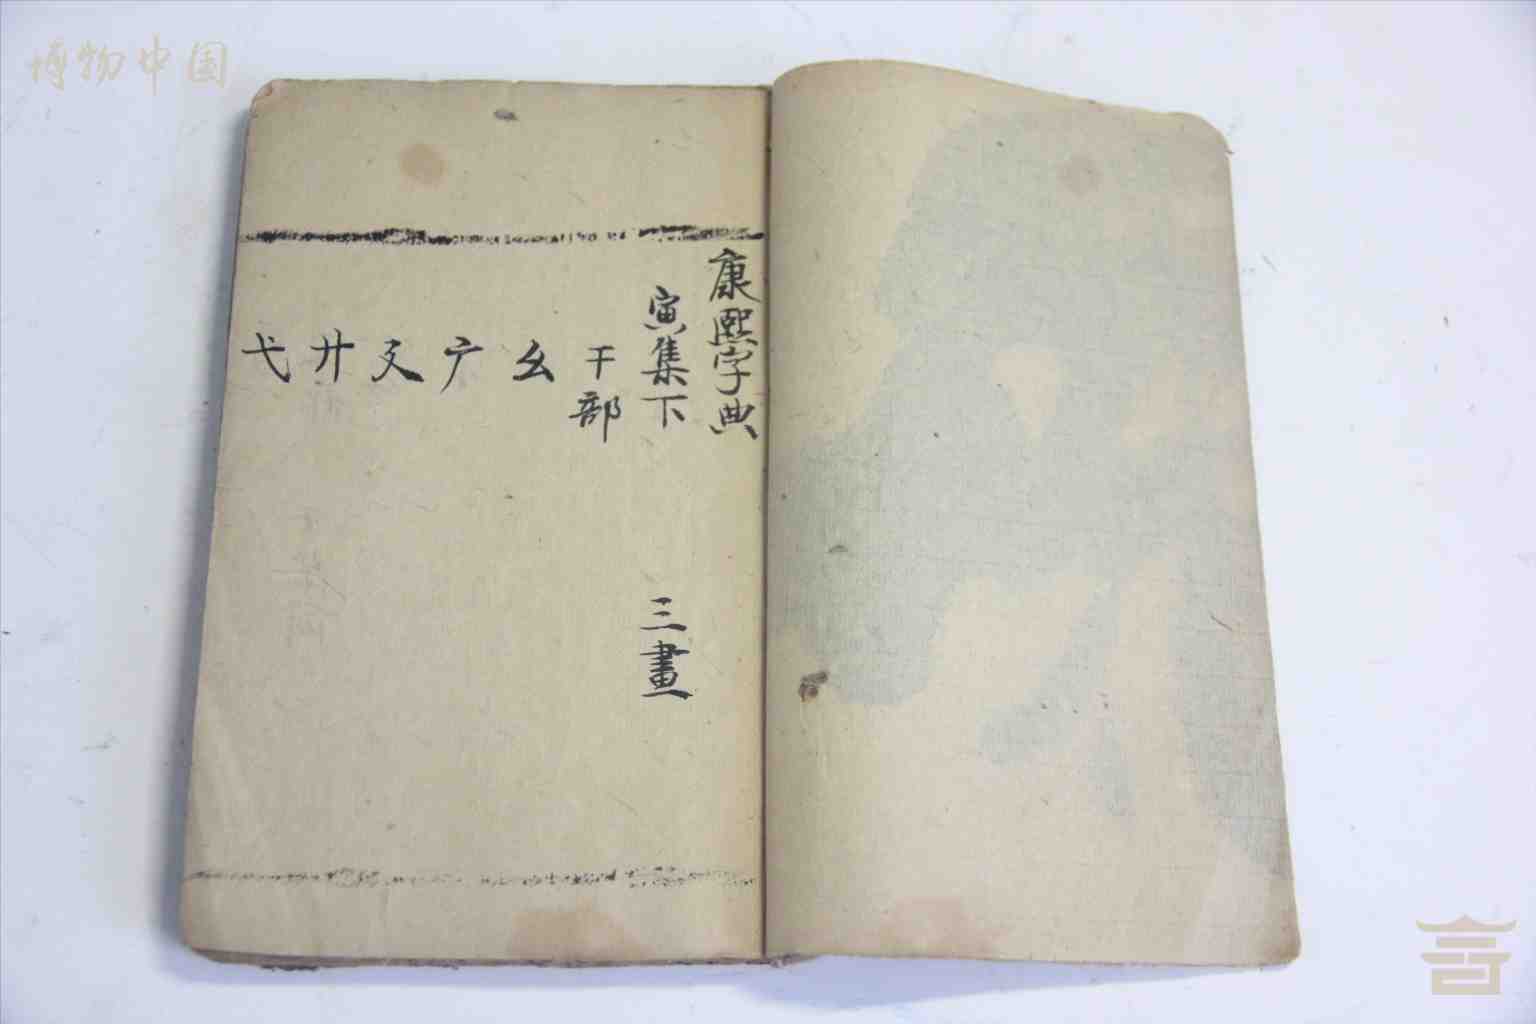 博物中国
康熙字典
寅集下 三畫
干部
幺
广
廴
廾
弋